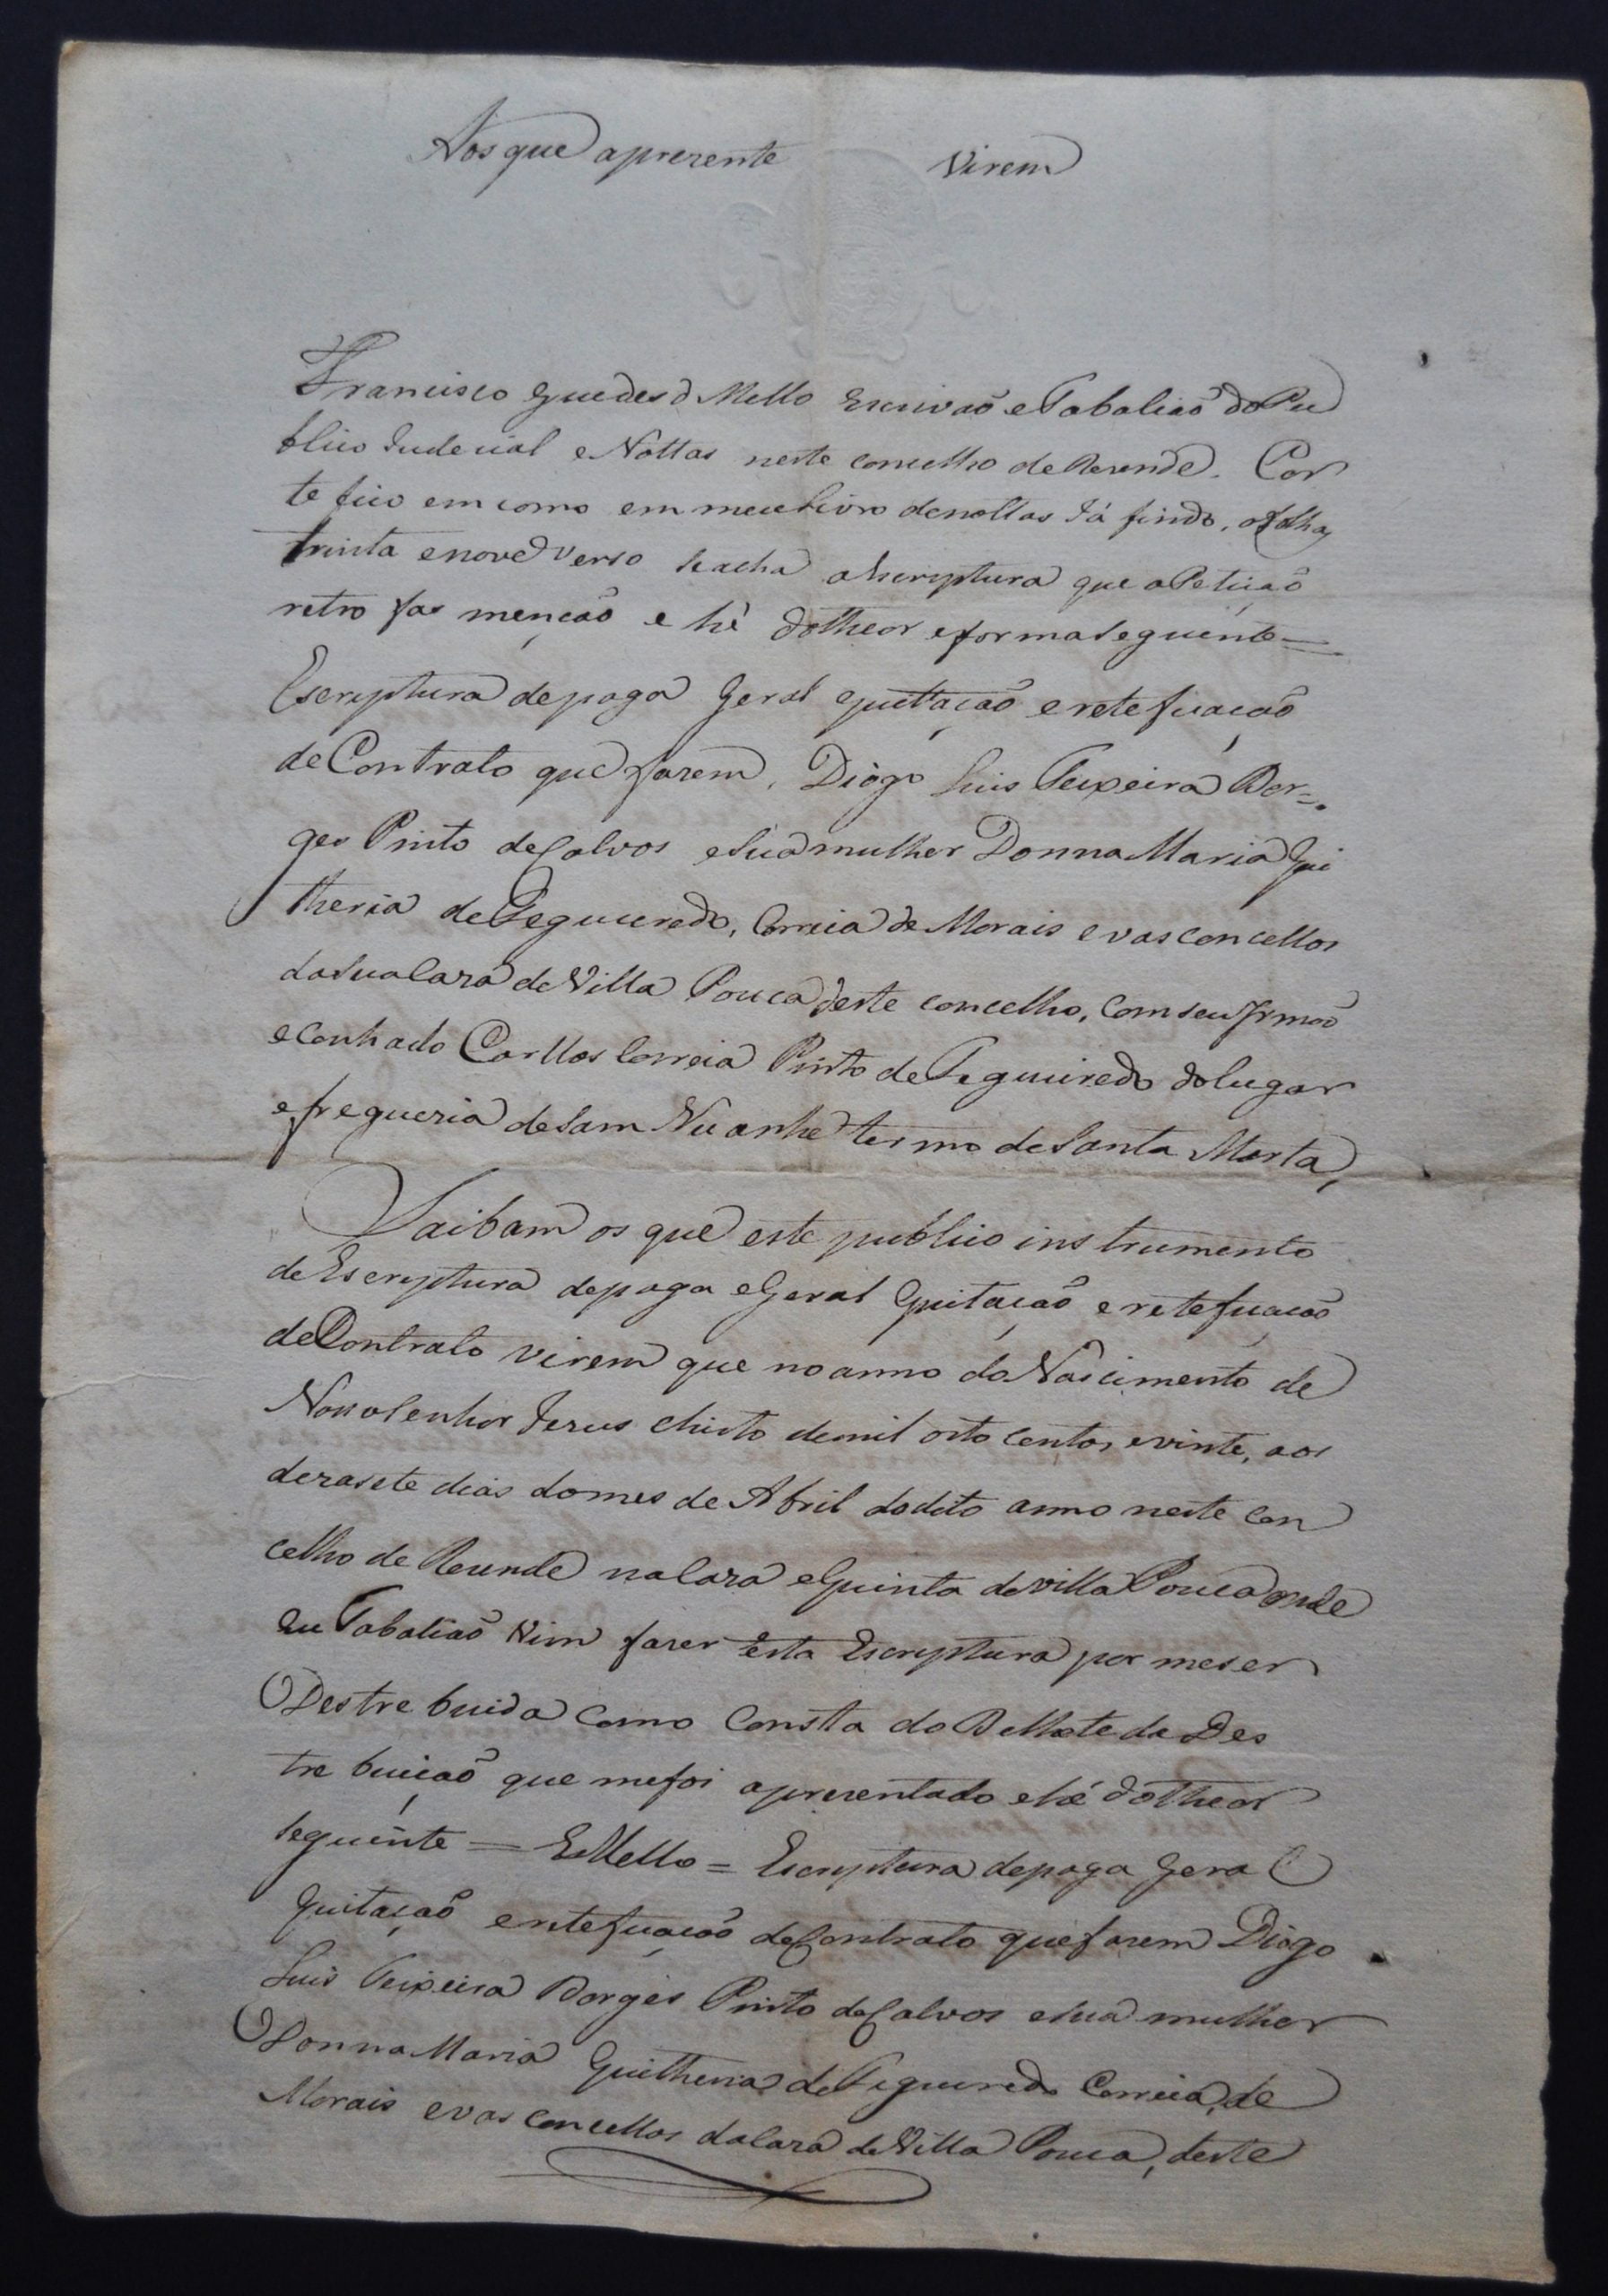 Aos que aprezente Virem
Francisco Guedes d Mello Escrivaõ e Tabaliaõ do Pu
blico Judecial e Nottas neste concelho de Rezende. Cer
te fico em como em meu Livro denottas Já findo, afolhas
trinta enove Verso seacha aEscriptura que aPetiçaõ
retro fas mençaõ e hê dotheor eformaSeguinte=
Escriptura depaga Geral quitaçaõ ereteficaçaõ
deContrato que fazem, Diogo Luis Teixeira Bor=
ges Pinto deCalvos eSuamulher DonnaMaria Qui
theria deFegueiredo, Correia de Morais evasconcellos
daSuaCaza de Villa Pouca deste concelho, Com seu Irmaõ
eConhado Carllos Correia Pinto deFegueiredo dolugar
efreguezia deSam Nuanhe termo deSanta Marta,
Saibam os que este publico instrumento
deEscriptura depaga eGeral Quitaçaõ eretefiçaçaõ
deContrato virem que noanno doNascimento de
NossoSenhor Jezus Christo demil oito Centos evinte, aos
dezasete dias domes de Abril dodito anno neste Con
celho de Rezende naCaza eQuinta devilla Pouca onde
Eu Tabaliaõ Vim fazer Esta Escriptura por meser
Destre buida Como Consta do Belhete da Des
tre buiçaõ que mefoi aprezentado ehé dotheor
Seguinte = EMello = Escriptura depaga Geral
Quitaçaõ eretefiçaçaõ deContrato quefazem Diogo
Luis Teixeira Borges Pinto deCalvos eSua mulher
DonnaMaria Quitheria deFegueiredo Correia, de
Morais evasConcellos daCaza deVilla Pouca, deste